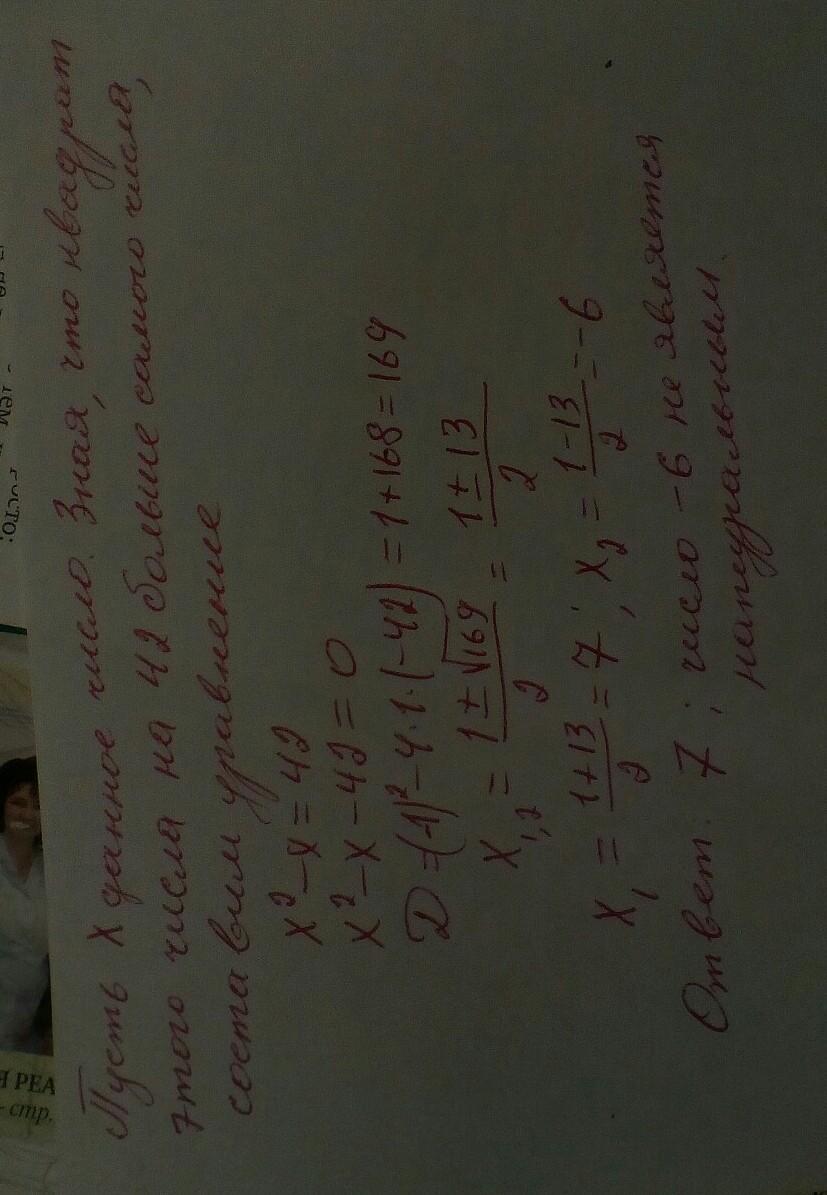 Пусть x данное число. Зная, что квадрат
этого числа на 42 больше самого числа,
составим уравнение
x² - x = 42
x² - x - 42 = 0
D = (-1)² - 4·1·(-42) = 1 + 168 = 169
x₁,₂ = (1 ± √169)/2 = (1 ± 13)/2
x₁ = (1 + 13)/2 = 7; x₂ = (1 - 13)/2 = -6
Ответ: 7; число -6 не является
натуральным.
Я РЕА
- стр.